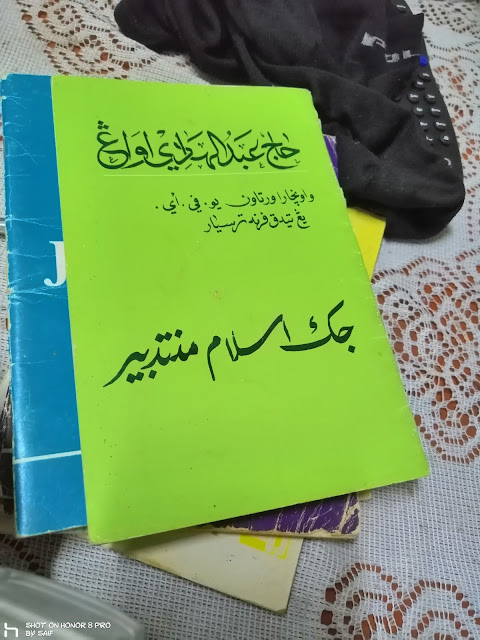 حاج عبدالهادي اواڠ
واونچارا ورتاون يو. في. اي.
يڠ تيدق فرنه ترسيار
جك اسلام منتدبير
SHOT ON HONOR 8 PRO
BY SAIF